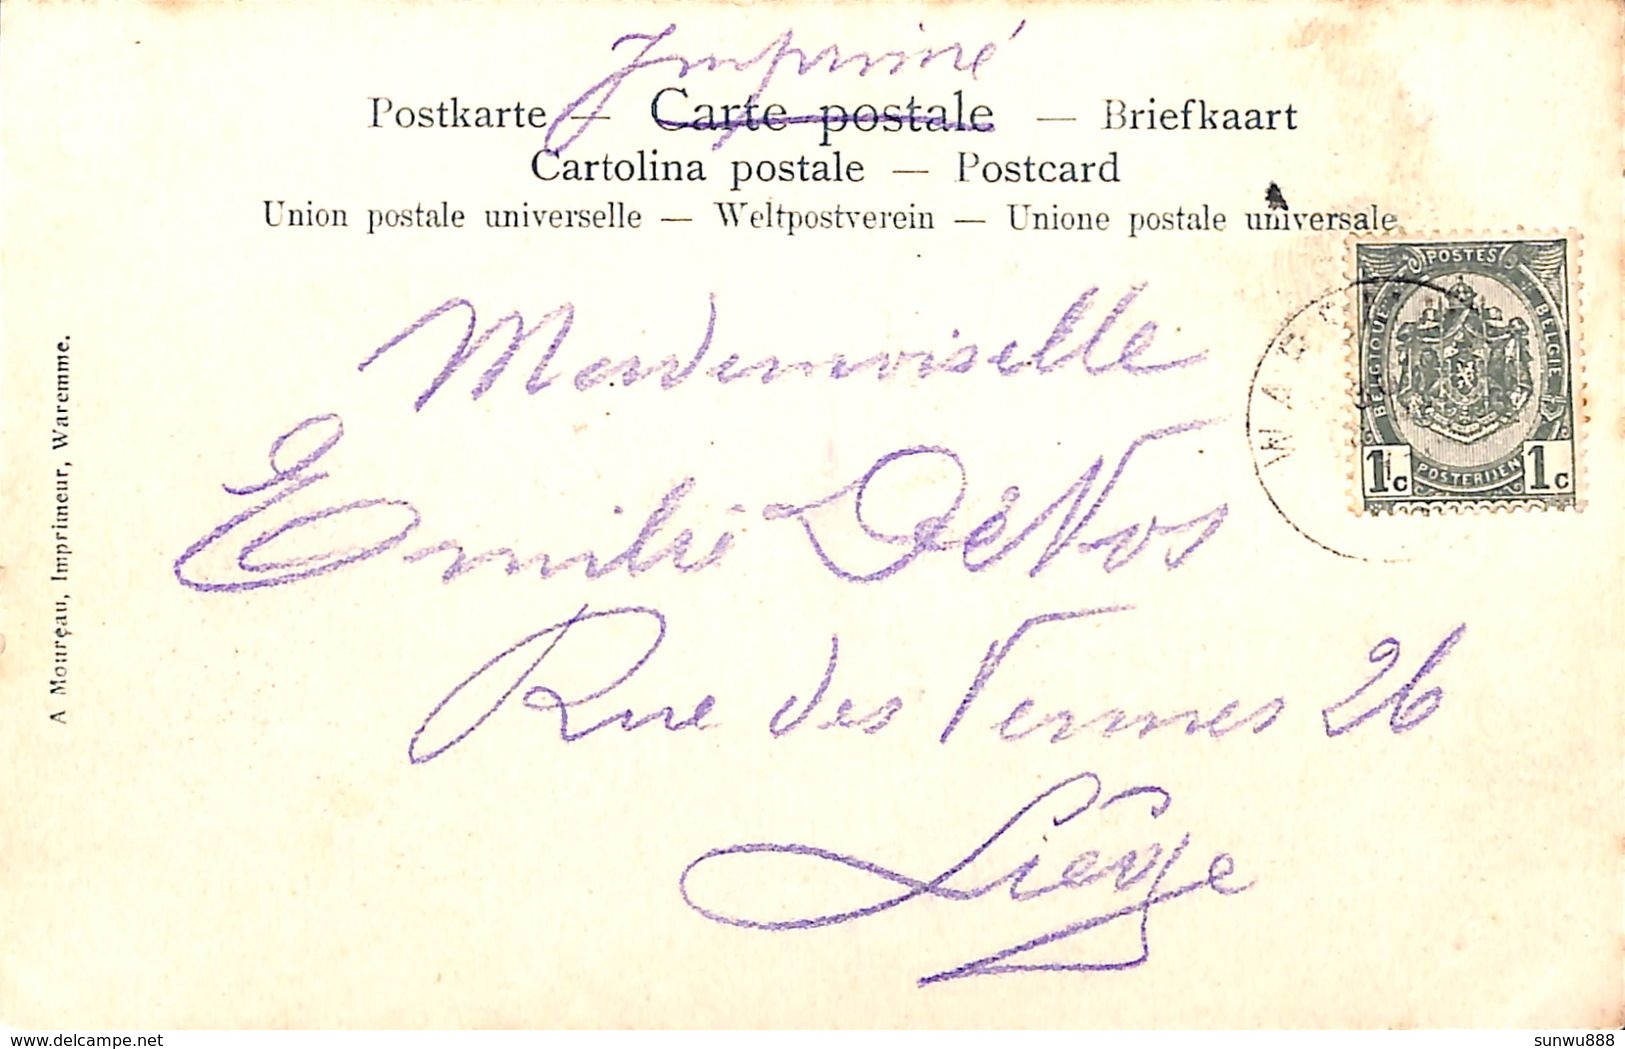 Imprimé
Postkarte — Carte postale — Briefkaart
Cartolina postale — Postcard
Union postale universelle — Weltpostverein — Unione postale universale
POSTES
BELGIQUE
BELGIE
POSTERIJEN
1c 1c
WAR
Mademoiselle
Emilie De Vos
Rue des Vennes 26
Liège
A Moureau, Imprimeur, Waremme.
delcampe.net
sunwu888